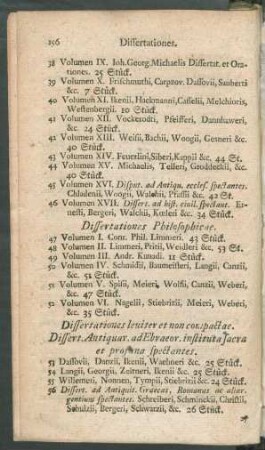 196 Dissertationes.
38 Volumen IX. Joh. Georg. Michaelis Dissertat. et Ora-
tiones. 25 Stück.
39 Volumen X. Frischmuthi, Carpzov. Dassovii, Sauberti
&c. 7 Stück.
40 Volumen XI. Ikenii, Hackmanni, Casselii, Melchioris,
Westenbergii. 10 Stück.
41 Volumen XII. Vockerodti, Pfeifferi, Dannhaweri,
&c. 24 Stück.
42 Volumen XIII. Weisii, Bachii, Woogii, Gesneri &c.
40 Stück.
43 Volumen XIV. Feuerlini, Siberi, Kappii &c. 44 St.
44 Volumen XV. Michaelis, Telleri, Gooddeckii, &c.
40 Stück.
45 Volumen XVI. Disput. ad Antiqu. eccles. spectantes.
Chladenii, Wongii, Walchii, Pfaffii &c. 42 St.
46 Volumen XVII. Dissert. ad hist. civil. spectant. Er-
nesti, Bergeri, Walchii, Kœleri &c. 34 Stück.
Dissertationes Philosophicae.
47 Volumen I. Con. Phil. Limmeri. 43 Stück.
48 Volumen II. Limmeri, Pritii, Weidleri &c. 53 St.
49 Volumen III. Andr. Kunadi. 11 Stück.
50 Volumen IV. Schmidii, Baumeisteri, Langii, Canzii,
&c. 51 Stück.
51 Volumen V. Spisii, Meieri, Wolfii, Canzii, Weberi,
&c. 47 Stück.
52 Volumen VI. Nagelii, Stiebritzii, Meieri, Weberi,
&c. 35 Stück.
Dissertationes leuiter et non compactae.
Dissert. Antiquar. ad Ebraeor. instituta sacra
et profana spectantes.
53 Dassovii, Danzii, Ikenii, Waehneri &c. 25 Stück.
54 Langii, Georgii, Zeitneri, Ikenii &c. 25 Stück.
55 Willemeri, Nonnen, Tympii, Stiebritzii &c. 24 Stück.
56 Dissert. ad Antiquit. Graecas, Romanas ac
gentium spectantes. Schreiberi, Schminckii, Christii,
Schulzii, Bergeri, Schwarzii, &c. 26 Stück.